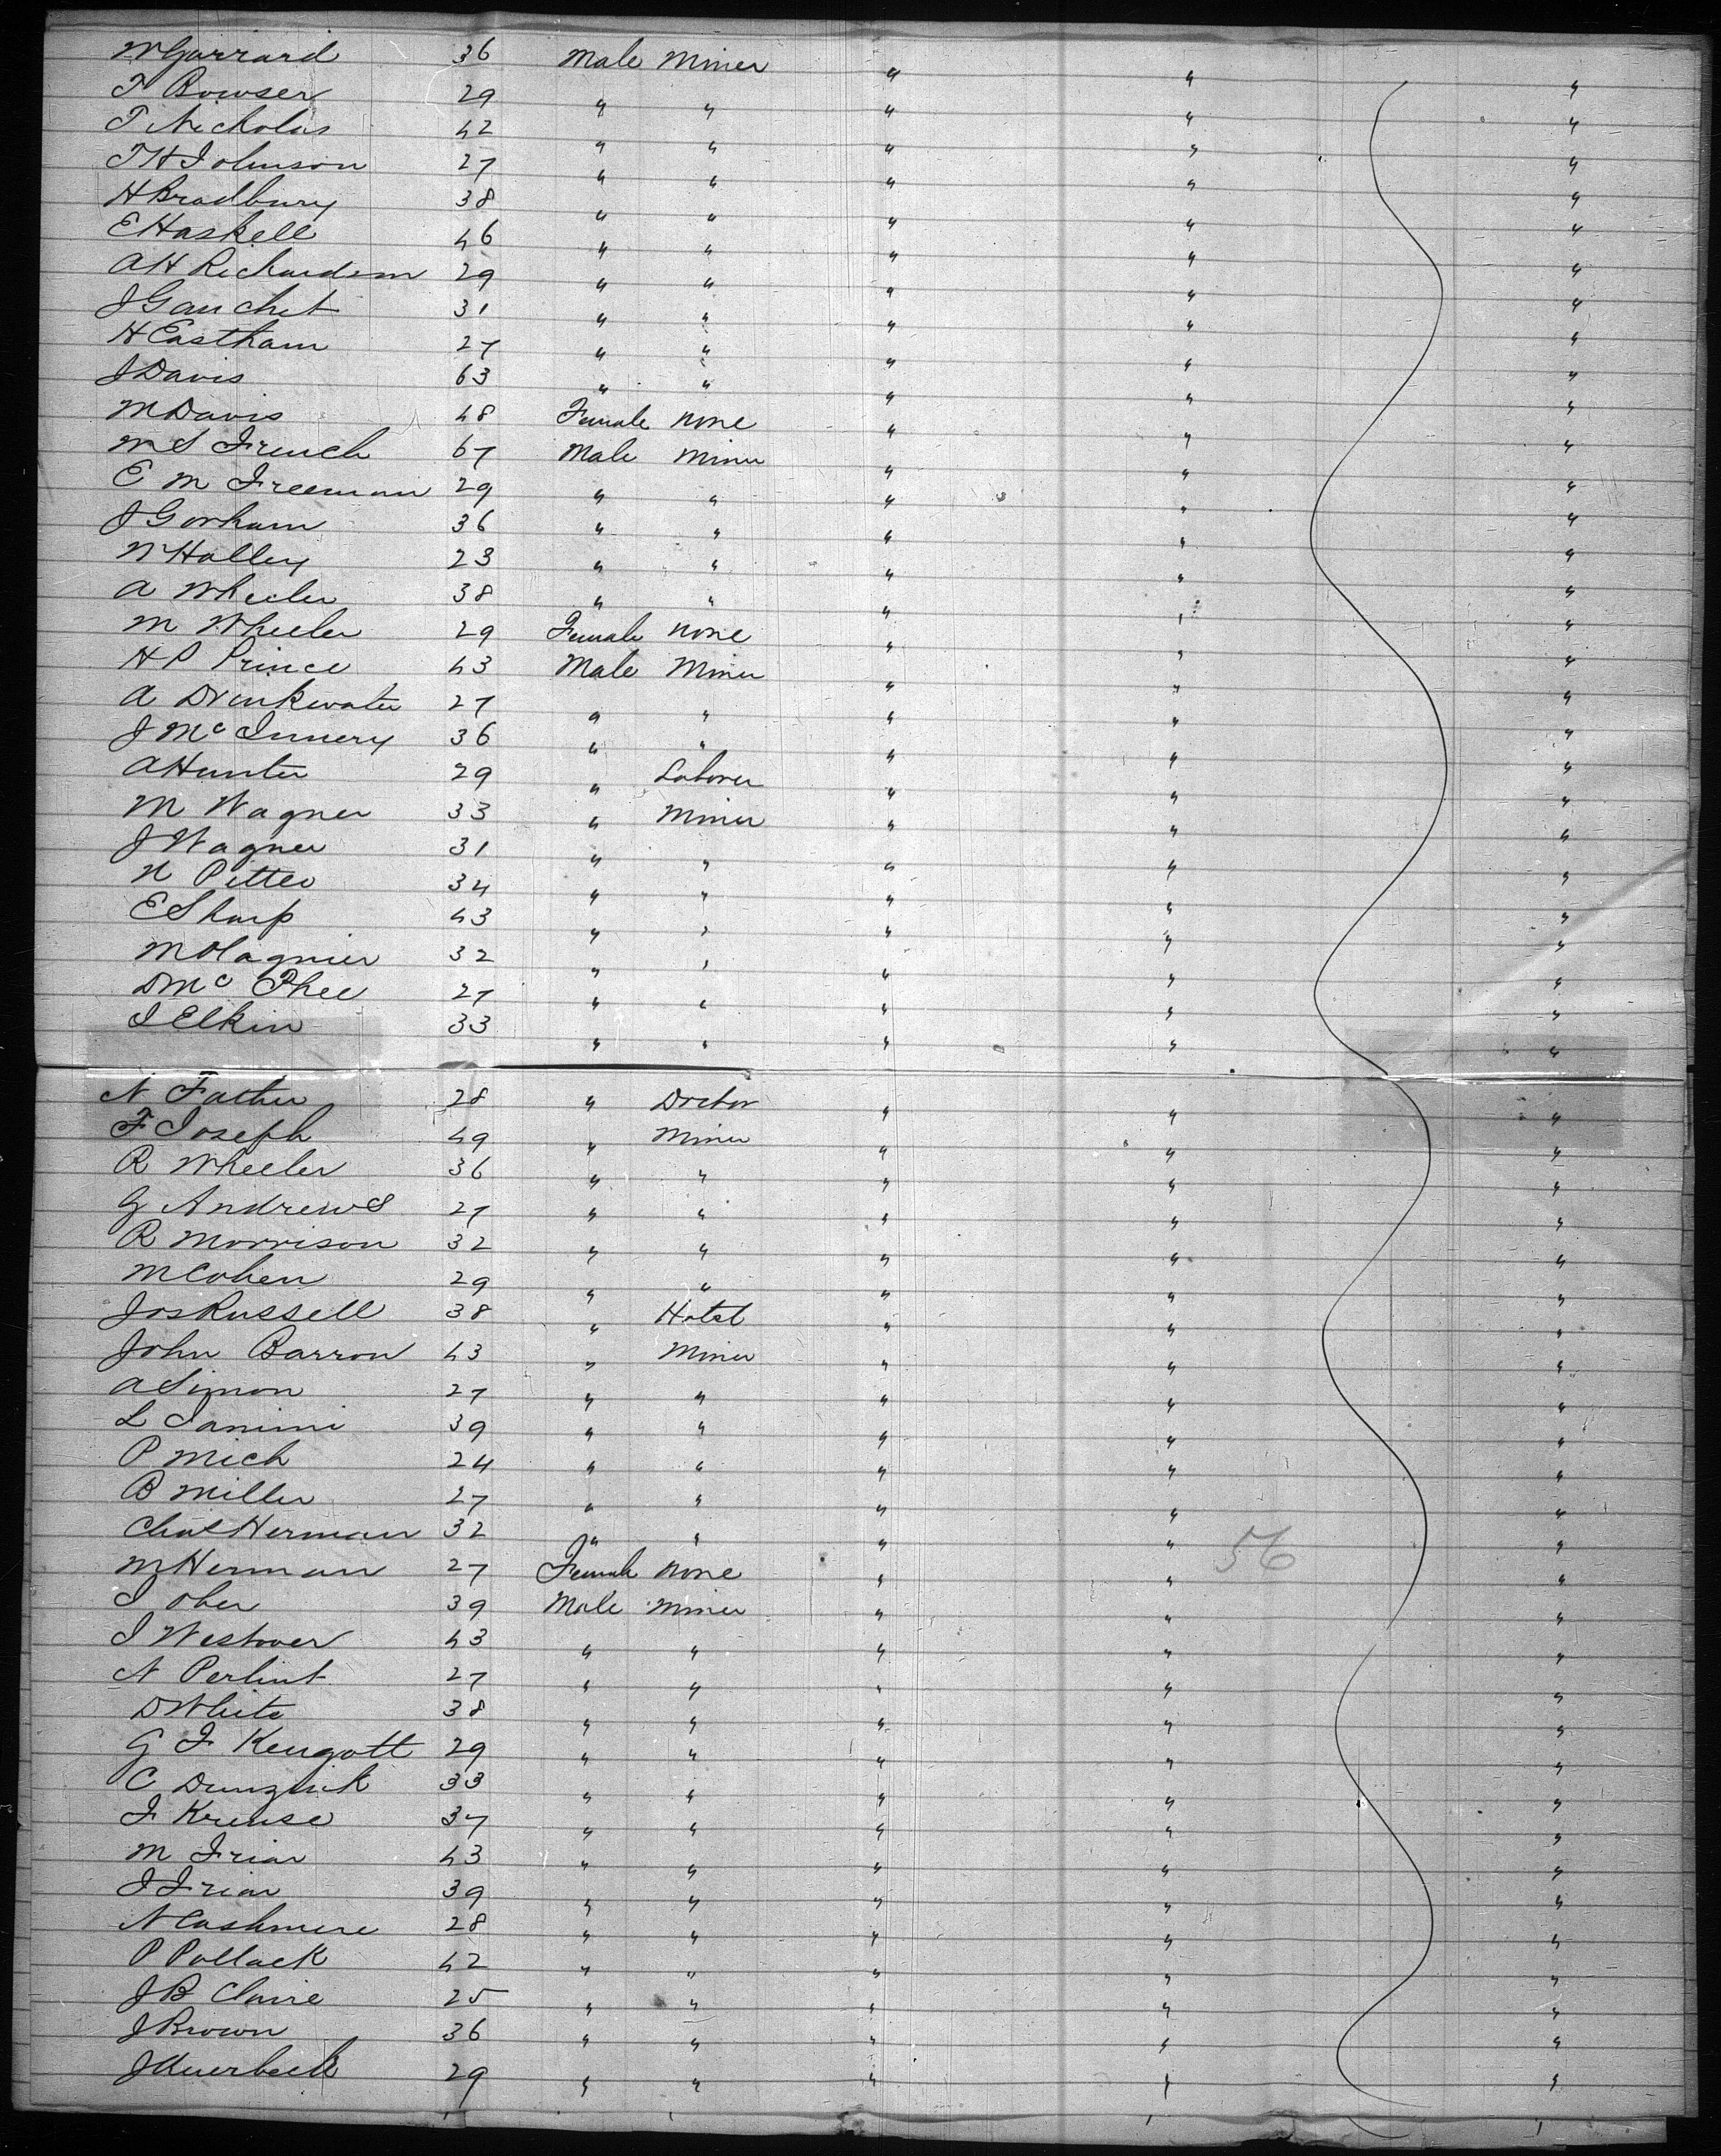 W Garrard 36 Male Miner " " "
T Bowser 29 " " " " "
T Nicholas 42 " " " " "
T H Johnson 27 " " " " "
H Bradbury 38 " " " " "
E Haskell 46 " " " " "
A H Richardson 29 " " " " "
J Gauchet 31 " " " " "
H Eastham 27 " " " " "
J Davis 63 " " " " "
M Davis 48 Female none " " "
M S French 67 Male Miner " " "
E M Freeman 29 " " " " "
J Gorham 36 " " " " "
W Holley 23 " " " " "
A Wheeler 38 " " " " "
M Wheeler 29 Female none " " "
H P Prince 43 Male Miner " " "
A Drinkwater 27 " " " " "
J McInnery 36 " " " " "
A Hunter 29 " Laborer " " "
M Wagner 33 " Miner " " "
J Wagner 31 " " " " "
N 34 " " " " "
E Sharp 43 " " " " "
32 " " " " "
D McPhee 27 " " " " "
I Elkin 33 " " " " "
N Father 28 " Doctor " " "
F Joseph 49 " Miner " " "
R Wheeler 36 " " " " "
G Andrews 27 " " " " "
R Morrison 32 " " " " "
M Cohen 29 " " " " "
Jos Russell 38 " Hotel " " "
John Barron 43 " Miner " " "
A Simon 27 " " " " "
L 39 " " " " "
P Mich 24 " " " " "
B Miller 27 " " " " "
Chas Herman 32 " " " " "
56
M Herman 27 Female none " " "
I Ober 39 Male Miner " " "
I Westover 43 " " " " "
N Perlint 27 " " " " "
D White 38 " " " " "
G F Kengott 29 " " " " "
C 33 " " " " "
F Kruse 37 " " " " "
M Friar 43 " " " " "
J Friar 39 " " " " "
N Cashmere 28 " " " " "
P Pollack 42 " " " " "
J B Claire 25 " " " " "
J Brown 36 " " " " "
J 29 " " " " "